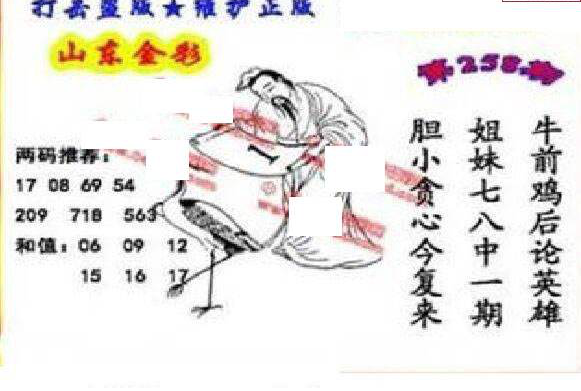 打击盗版★维护正版
山东金彩
第258期
两码推荐：
17 08 69 54
209 718 563
和值：06 09 12
15 16 17
1
牛前鸡后论英雄
姐妹七八中一期
胆小贪心今复来